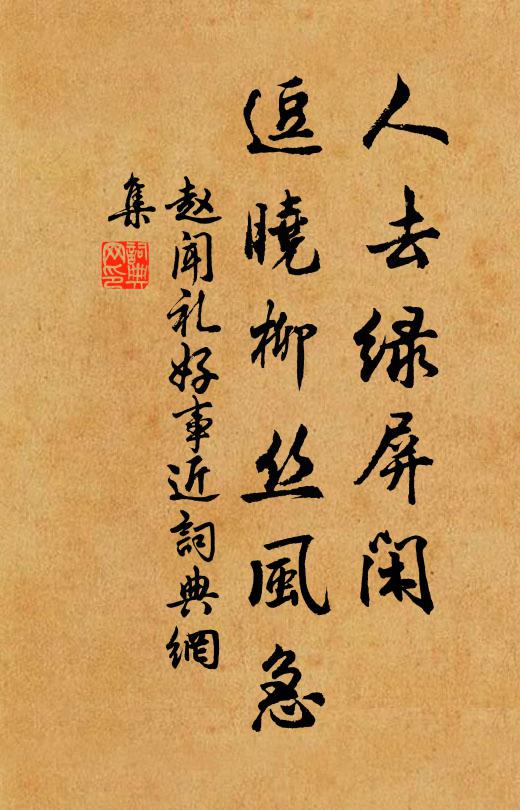 人去绿屏闲
逗曉柳丝風急
赵闻礼好事近詞典網
集
詞典
网印